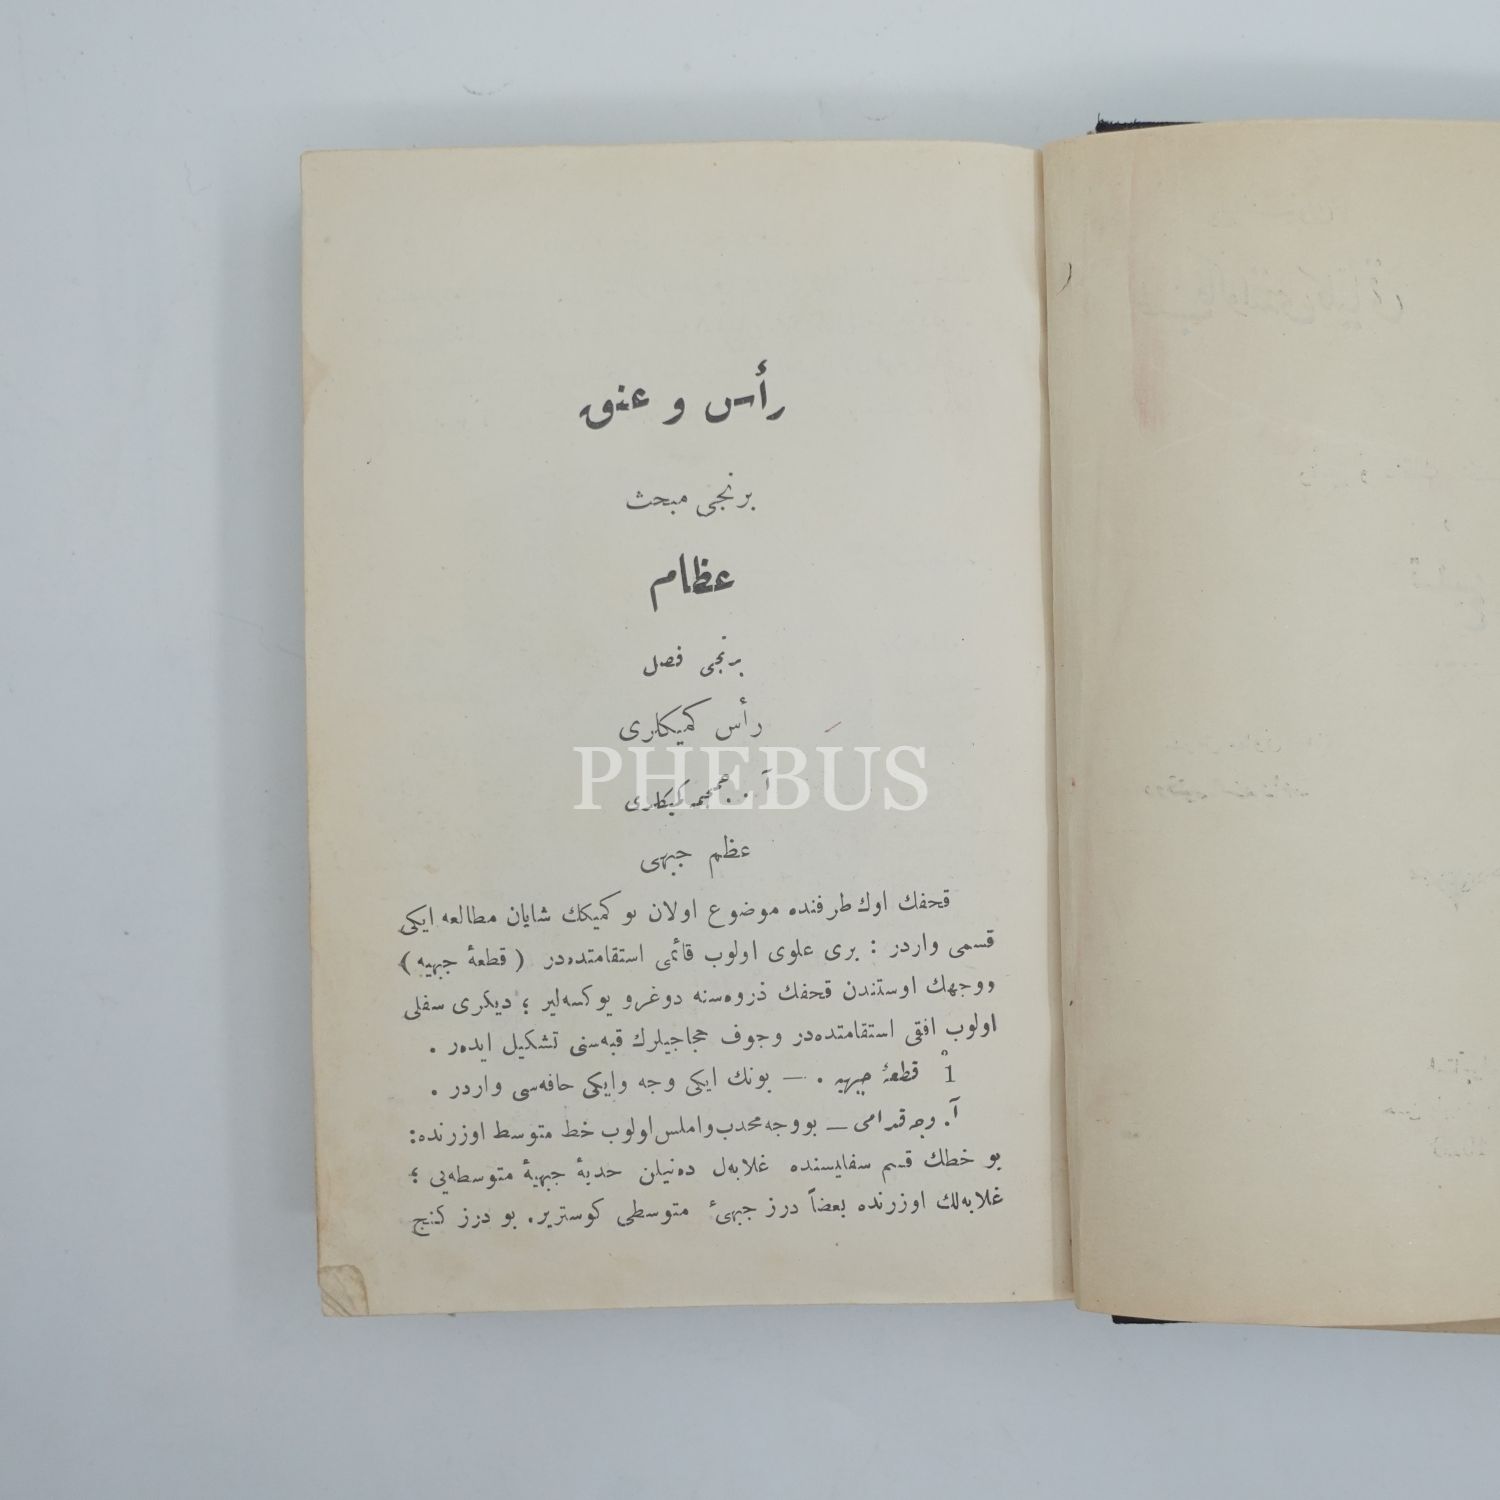 رأس و عنق
برنجی مبحث
عظام
برنجی فصل
رأس كمیكلری
آ . . جمجمه كمیكلری
PHEBUS
عظم جبهی
قحفك اوك طرفنده موضوع اولان بو كمیكك شایان مطالعه ایكی
قسمی واردر : بری علوی اولوب قائمی استقامتده‌در ( قطعهٔ جبهیه )
ووجهك اوستندن قحفك ذروه‌سنه دوغرو یوكسه‌لیر ؛ دیكری سفلی
اولوب افقی استقامتده‌در وجوف حجاجیلرك قبه‌سنی تشكیل ایده‌ر .
1̊ قطعهٔ جبهیه . — بونك ایكی وجه وایكی حافه‌سی واردر .
آ. وجه قدامی — بووجه محدب واملس اولوب خط متوسط اوزرنده:
بو خطك قسم سفلیسنده غلابه‌ل ده‌نیلن حدبهٔ جبهیهٔ متوسطه‌یی ؛
غلابه‌لك اوزرنده بعضاً درز جبهیٔ متوسطی كوستریر. بو درز كنج